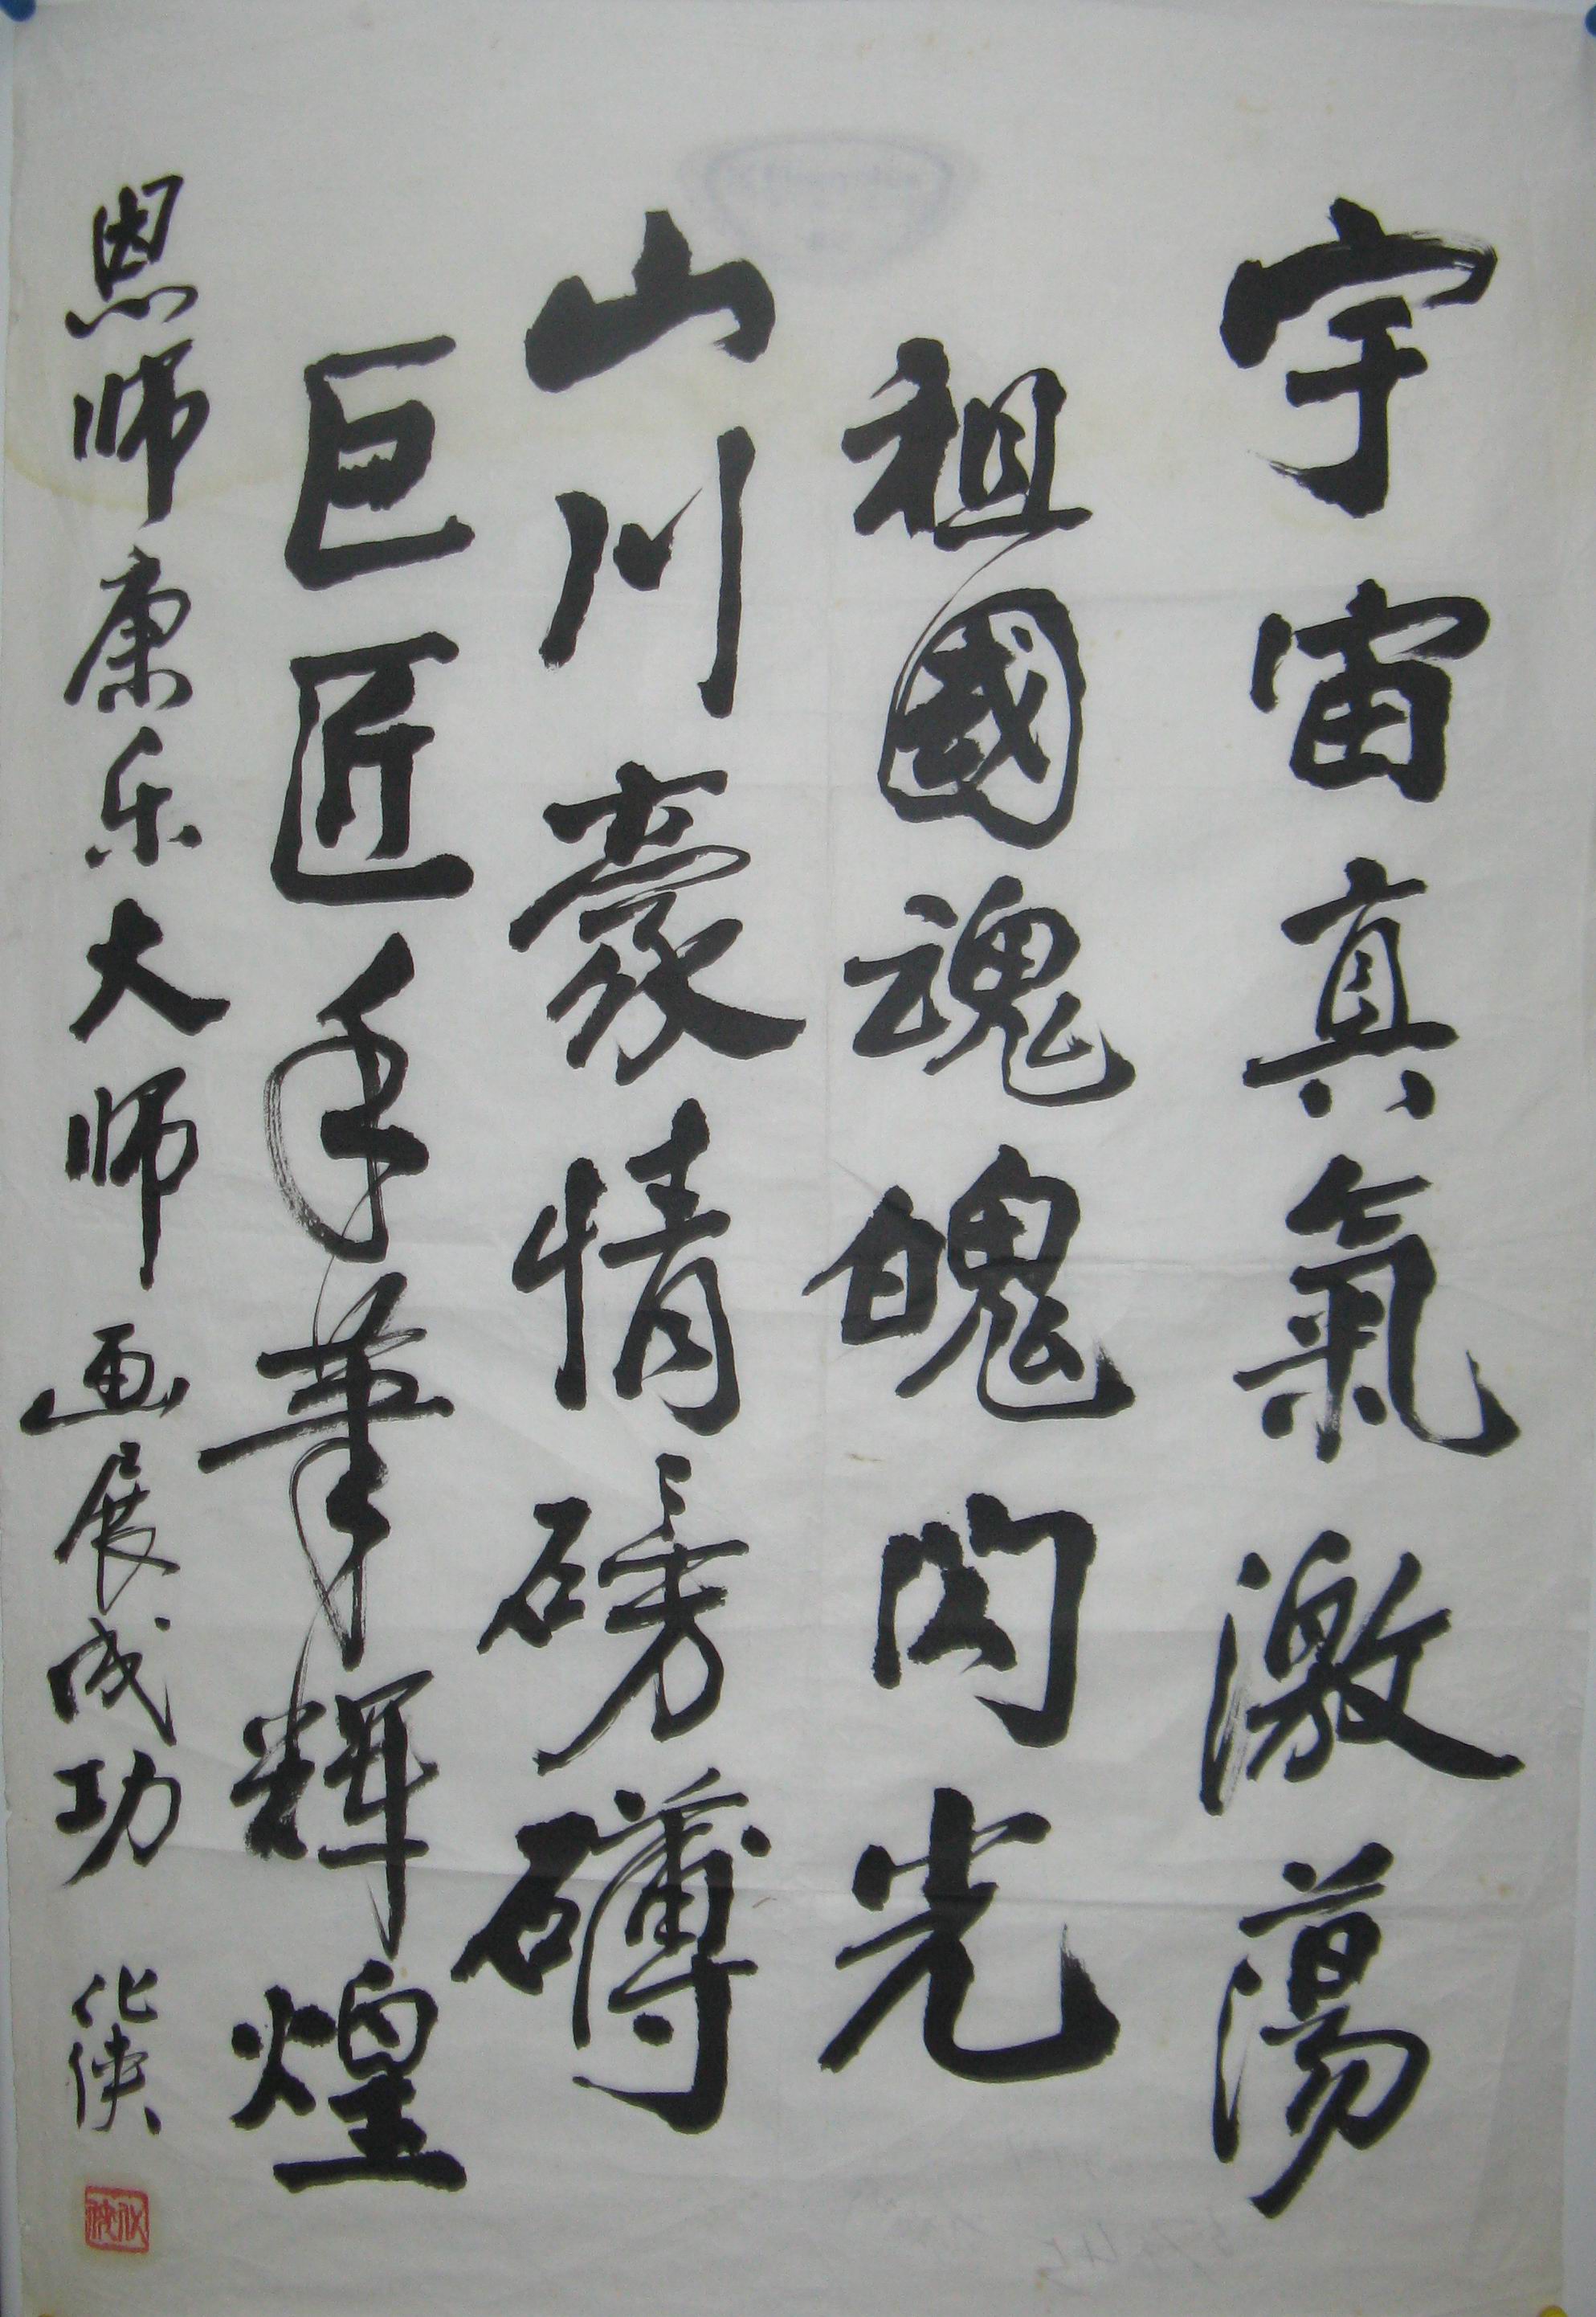 宇宙真氣激蕩
祖國魂魄闪光
山川豪情磅礴
巨匠手筆輝煌
恩师康乐大师画展成功
化侠